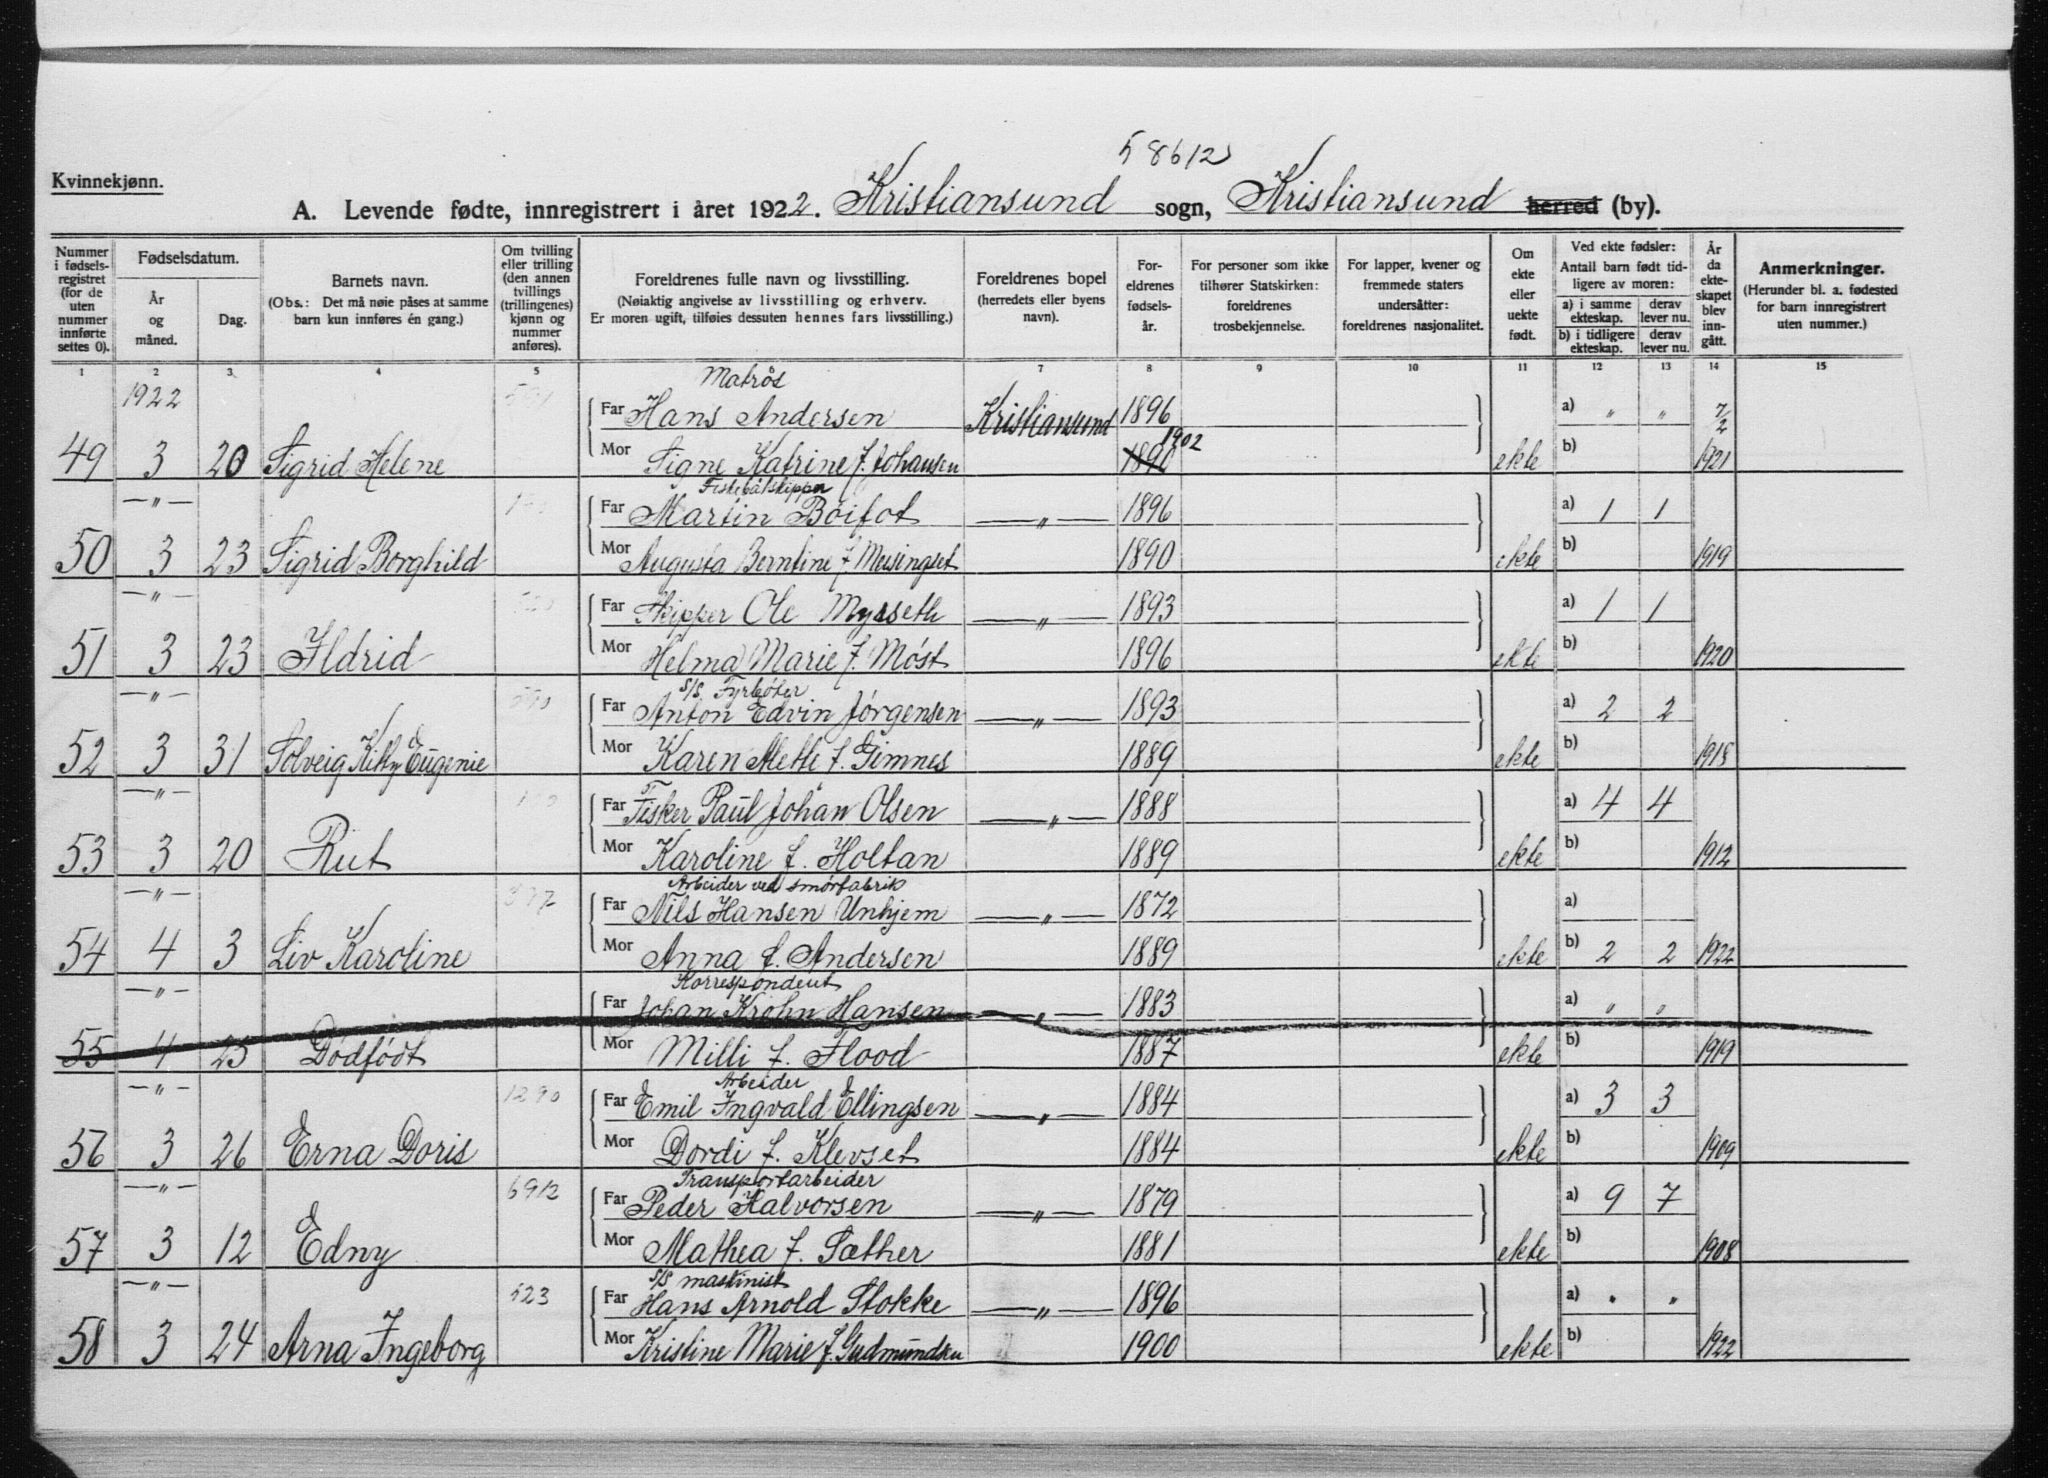 5 8612
Kvinnekjønn.
A. Levende fødte, innregistrert i året 1922. Kristiansund sogn, Kristiansund herred (by).
Nummer i fødselsregistret (for de uten nummer innførte settes 0).
Fødselsdatum.
År og måned.
Dag.
Barnets navn.
(Obs.: Det må nøie påses at samme barn kun innføres én gang.)
Om tvilling eller trilling (den annen tvillings (trillingenes) kjønn og nummer anføres).
Foreldrenes fulle navn og livsstilling.
(Nøiaktig angivelse av livsstilling og erhverv. Er moren ugift, tilføies dessuten hennes fars livsstilling.)
Foreldrenes bopel (herredets eller byens navn).
Foreldrenes fødselsår.
For personer som ikke tilhører Statskirken: foreldrenes trosbekjennelse.
For lapper, kvener og fremmede staters undersåtter: foreldrenes nasjonalitet.
Om ekte eller uekte født.
Ved ekte fødsler: Antall barn født tidligere av moren:
a) i samme ekteskap. derav lever nu.
b) i tidligere ekteskap. derav lever nu.
År da ekteskapet blev inngått.
Anmerkninger.
(Herunder bl. a. fødested for barn innregistrert uten nummer.)
1 2 3 4 5 6 7 8 9 10 11 12 13 14 15
1922 Matros
Far Hans Andersen Kristiansund 1896 a) " " 7/2
49 3 20 Sigrid Helene Mor Signe Katrine f. Johansen 1890 1902 ekte b) 1921
Fiskebåtskipper
—"— Far Martin Bøifot —"— 1896 a) 1 1
50 3 23 Sigrid Borghild Mor Augusta Berntine f. Meisingset 1890 ekte b) 1919
—"— Far Skipper Ole Myrseth —"— 1893 a) 1 1
51 3 23 Ildrid Mor Helma Marie f. Møst 1896 ekte b) 1920
s/s. Fyrbøter
—"— Far Anton Edvin Jørgensen —"— 1893 a) 2 2
52 3 31 Solveig Kitty Eugenie Mor Karen Mette f. Gimnes 1889 ekte b) 1918
—"— Far Fisker Paul Johan Olsen —"— 1888 a) 4 4
53 3 20 Rut Mor Karoline f. Holtan 1889 ekte b) 1912
Arbeider ved smørfabrik
—"— Far Nils Hansen Unhjem —"— 1872 a)
54 4 3 Liv Karoline Mor Anna f. Andersen 1889 ekte b) 2 2 1922
Korrespondent
—"— Far Johan Krohn Hansen —"— 1883 a) " "
55 4 25 Dødfødt Mor Milli f. Flood 1887 ekte b) 1919
Arbeider
—"— 1290 Far Emil Ingvald Ellingsen —"— 1884 a) 3 3
56 3 26 Erna Doris Mor Dordi f. Klevset 1884 ekte b) 1909
Transportarbeider
—"— 6912 Far Peder Halvorsen —"— 1879 a) 9 7
57 3 12 Edny Mor Mathea f. Sæther 1881 ekte b) 1908
s/s maskinist
—"— 523 Far Hans Arnold Stokke —"— 1896 a) " "
58 3 24 Arna Ingeborg Mor Kristine Marie f. Gudmundsen 1900 ekte b) 1922